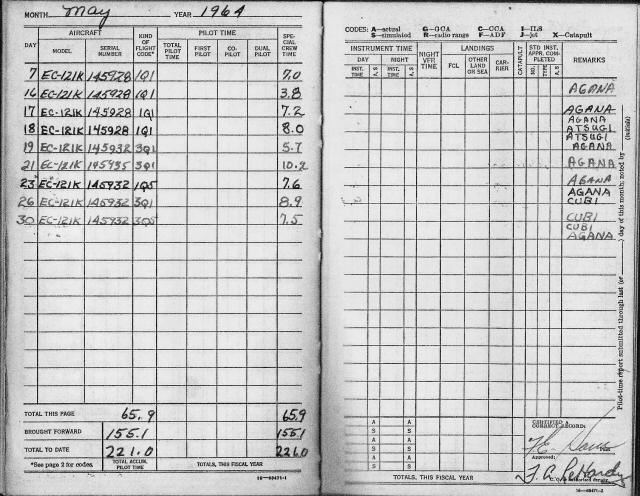 MONTH May YEAR 1964
AIRCRAFT PILOT TIME
DAY MODEL SERIAL NUMBER KIND OF FLIGHT CODE* TOTAL PILOT TIME FIRST PILOT CO-PILOT DUAL PILOT SPECIAL CREW TIME
7 EC-121K 145928 1Q1 7.0
16 EC-121K 145928 1Q1 3.8
17 EC-121K 145928 1Q1 7.2
18 EC-121K 145928 1Q1 8.0
19 EC-121K 145932 3Q1 5.7
21 EC-121K 145935 3Q1 10.2
23 EC-121K 145932 1Q5 7.6
26 EC-121K 145932 3Q1 8.9
30 EC-121K 145932 3Q5 7.5
TOTAL THIS PAGE 65.9 65.9
BROUGHT FORWARD 155.1 155.1
TOTAL TO DATE 221.0 221.0
*See page 2 for codes. TOTAL ACCUM. PILOT TIME TOTALS, THIS FISCAL YEAR
16—69471-1
CODES: A—actual G—GCA C—CCA I—ILS
S—simulated R—radio range F—ADF J—jet X—Catapult
INSTRUMENT TIME NIGHT VFR TIME LANDINGS CATAPULT STD INST. APPR. COMPLETED REMARKS
DAY NIGHT FCL OTHER LAND OR SEA CARRIER NO. TYPE A, S
INST. TIME A, S INST. TIME A, S
AGANA
AGANA
AGANA
ATSUGI
ATSUGI
AGANA
AGANA
AGANA
AGANA
CUBI
CUBI
CUBI
AGANA
Pilot-time report submitted through last (or ) day of this month; noted by (initials)
A A
S S
A A
S S
A A
S S
CERTIFIED CORRECT RECORD:
Approved:
TOTALS, THIS FISCAL YEAR